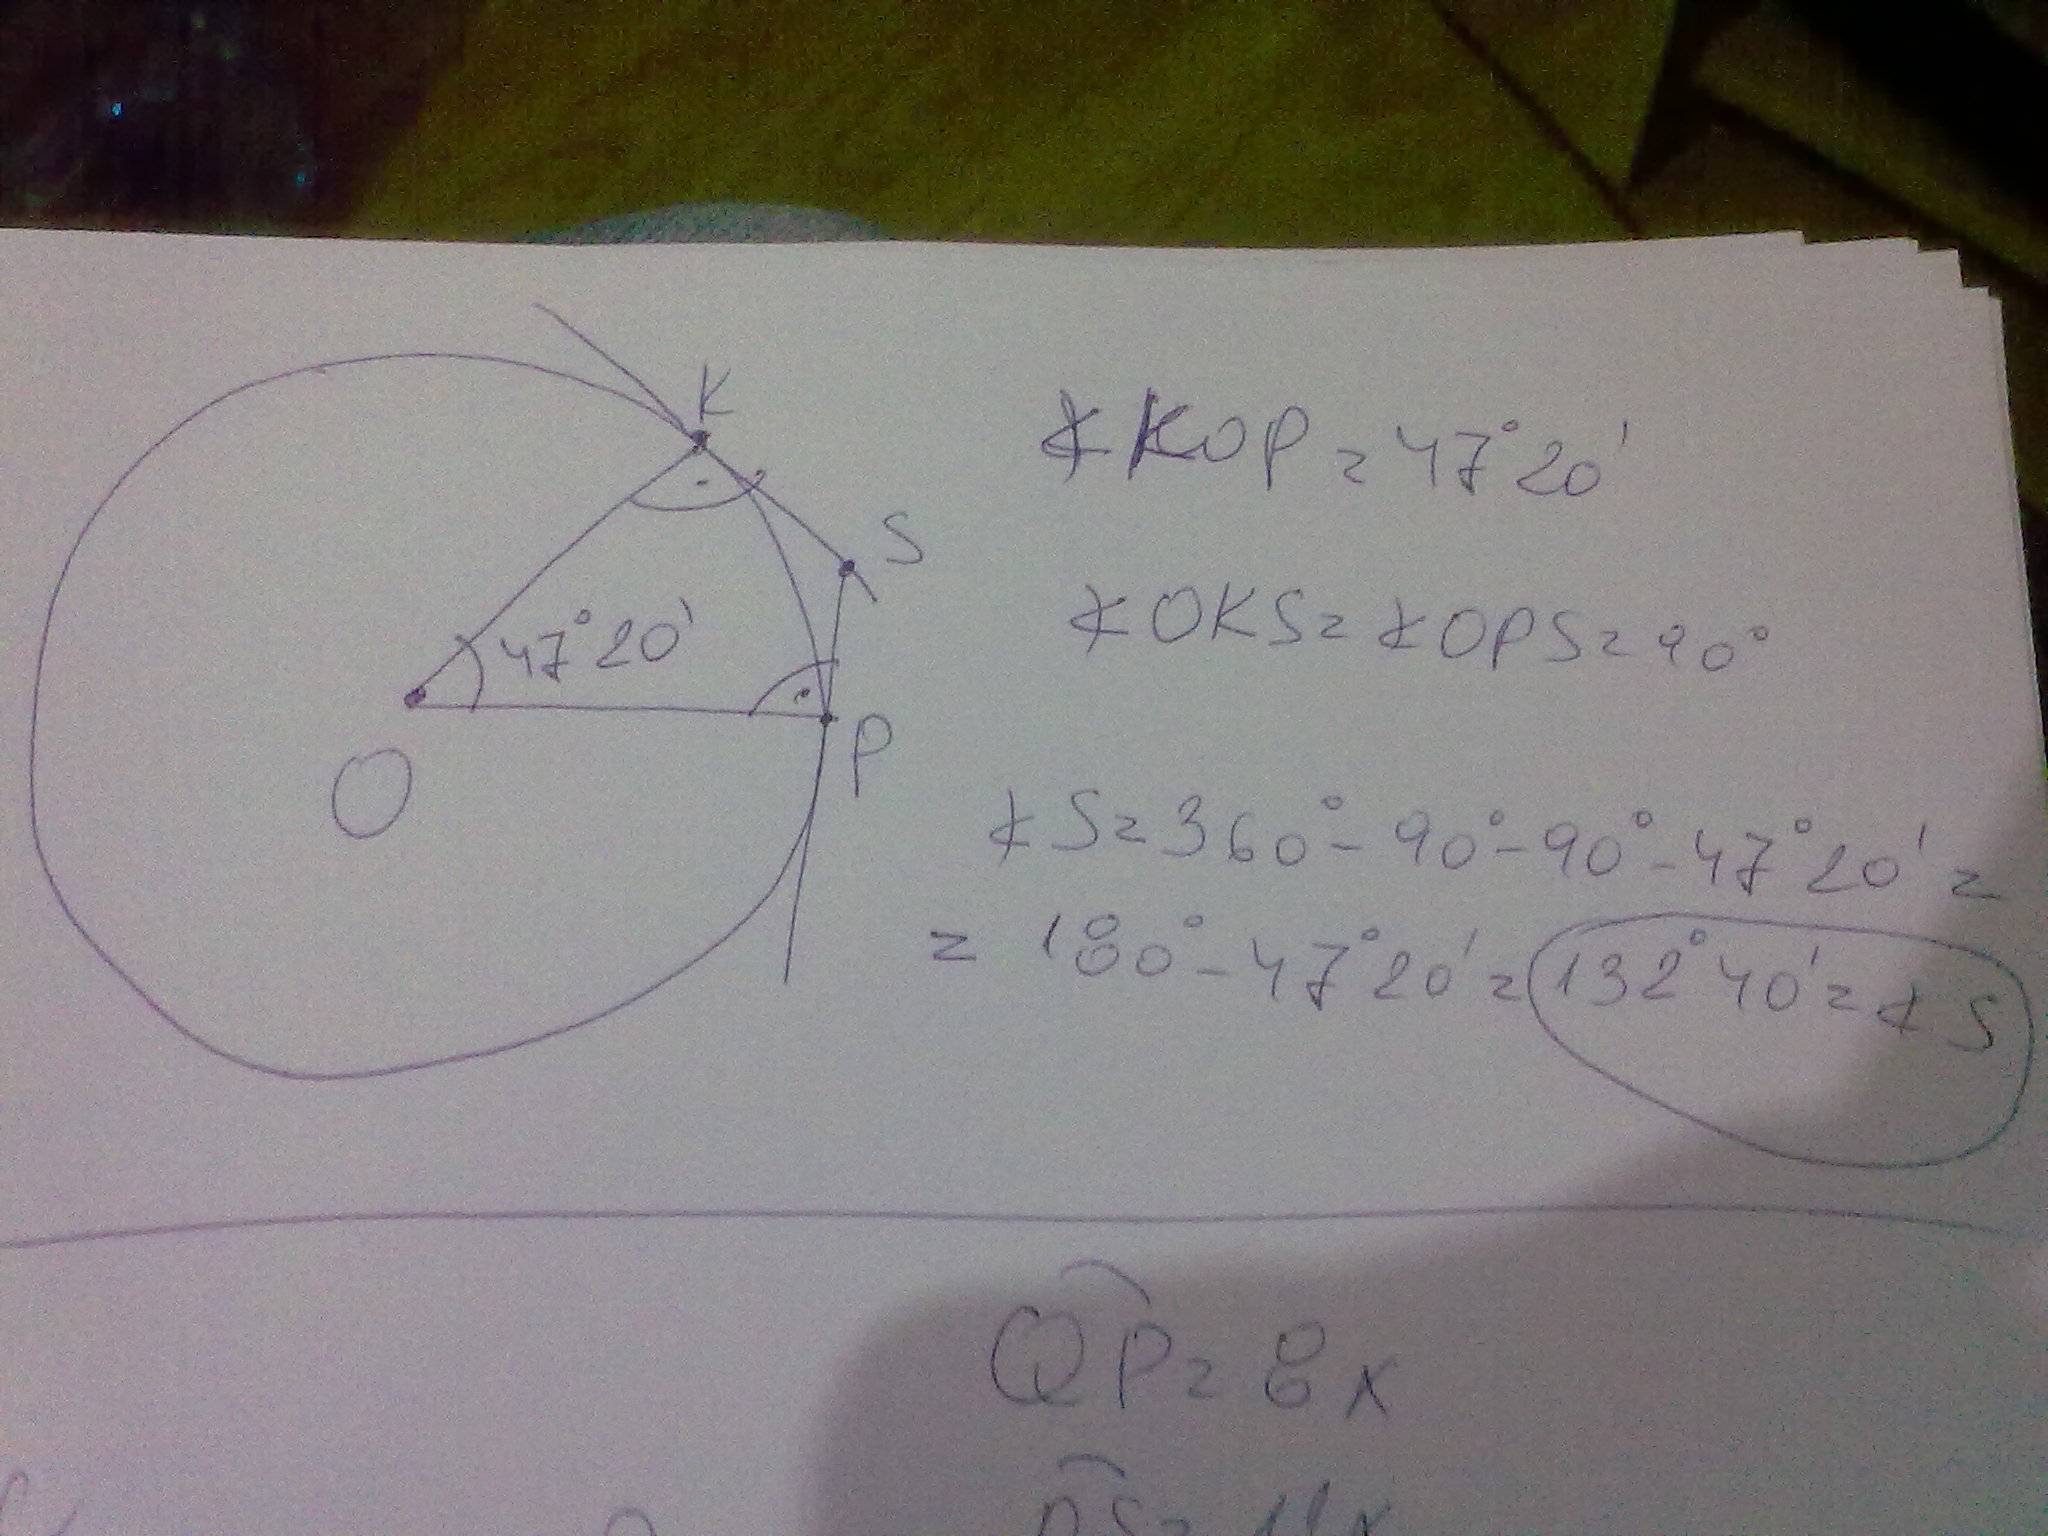 K
S
47°20'
O
P
∡KOP = 47°20'
∡OKS = ∡OPS = 90°
∡S = 360° - 90° - 90° - 47°20' =
= 180° - 47°20' = 132°40' = ∡S
QP = 8x